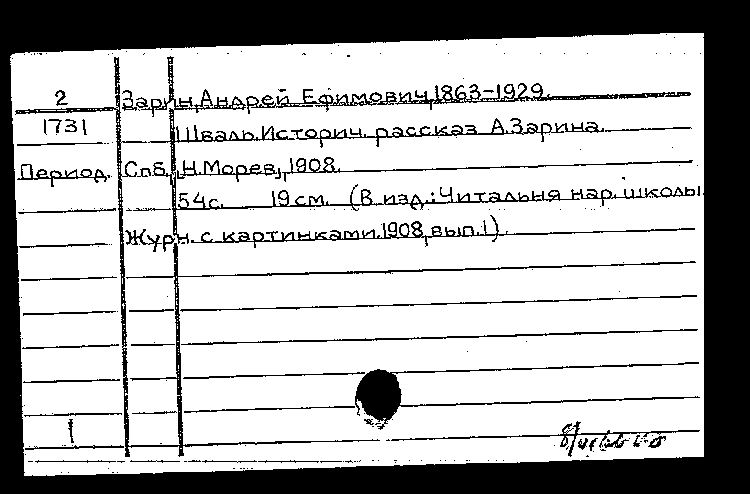 2 Зарин, Андрей Ефимович, 1863-1929.
1731 Шваль. Историч. рассказ А. Зарина.
Период. Спб., "Н. Морев", 1908.
54 с. 19 см. (В изд.: Читальня нар. школы.
Журн. с картинками. 1908, вып. 1).
1